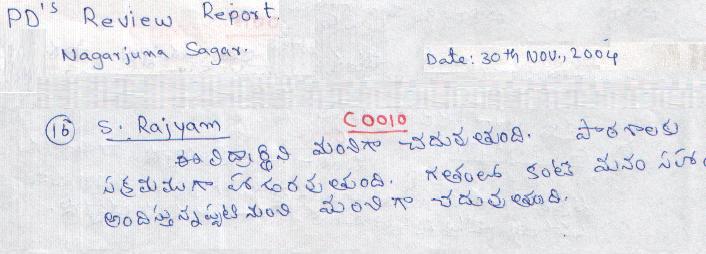 PD's Review Report.
Nagarjuna Sagar.
Date: 30th NOV., 2004
16 S. Rajyam C0010
ఈ విద్యార్థిని మంచిగా చదువుతుంది. పాఠశాలకు
సక్రమముగా హాజరవుతుంది. గతంలో కంటే మనం సహా
అందిస్తున్నప్పటి నుంచి మంచిగా చదువుతుంది.